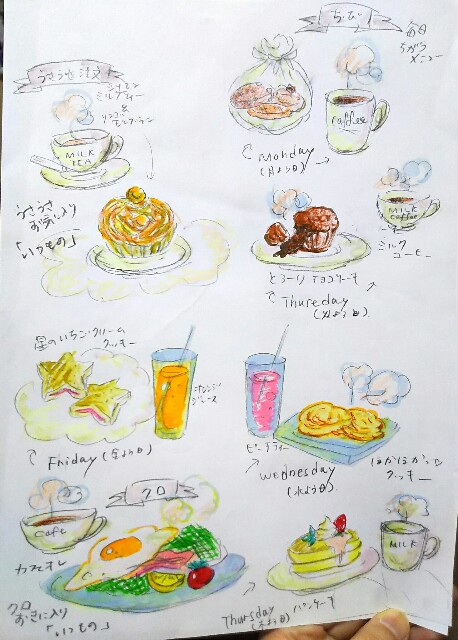 うさうさ注文
シナモン
ミルクティー
&
MILK
TEA
うさうさ
お気に入り
「いつもの」
ちび
毎日
ちがう
メニュー
coffee
Monday
(月よう日)
MILK
coffee
ミルク
コーヒー
とろ〜り チョコケーキ
Thuresday
(火よう日)
星のいちごクリーム
クッキー
オレンジ
ジュース
Friday (金よう日)
ピーチティー
Wednesday
(水よう日)
ほかほか
クッキー
クロ
Cafe
カフェオレ
クロ
お気に入り
「いつもの」
MILK
Thursday
(木よう日)
パンケーキ